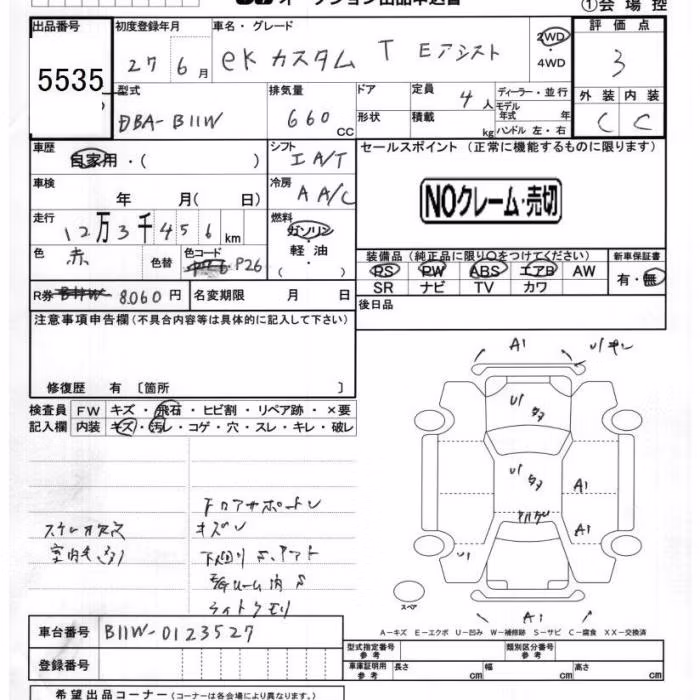 ①会場控
出品番号 初度登録年月 車名・グレード 評価点
5535 27 6月 eKカスタム T Eアシスト 2WD・4WD 3
型式 排気量 ドア 定員 4人 ディーラー・並行 外装 内装
DBA-B11W 660cc 形状 積載 kg モデル年式 年 ハンドル 左・右 C C
車歴 自家用・( ) シフト I A/T セールスポイント (正常に機能するものに限ります)
車検 年 月( 日) 冷房 A A/C NOクレーム・売切
走行 12万3千456km 燃料 ガソリン・軽油・( )
色 赤 色替 色コード P26 装備品 (純正品に限り○をつけてください) 新車保証書
PS PW ABS エアB AW 有・無
SR ナビ TV カワ
R券 8,060円 名変期限 月 日 後日品
注意事項申告欄(不具合内容等は具体的に記入して下さい)
修復歴 有 〔箇所 〕
検査員 FW キズ・飛石・ヒビ割・リペア跡・×要
記入欄 内装 キズ・汚レ・コゲ・穴・スレ・キレ・破レ
A1
U1
A1
U1
A1
U1
A1
スペア
キズ
下廻りS.
ライトクモリ
A-キズ E-エクボ U-凹み W-補修跡 S-サビ C-腐食 XX-交換済
車台番号 B11W-0123527
型式指定番号 参考 類別区分番号 参考
登録番号 車庫証明用 参考 長さ cm 幅 cm 高さ cm
希望出品コーナー(コーナーは各会場により異なります。)